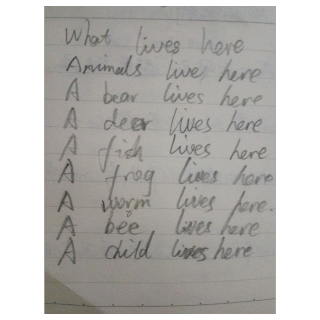 What lives here
Animals live here
A bear lives here
A deer lives here
A fish lives here
A frog lives here
A worm lives here.
A bee lives here
A child lives here